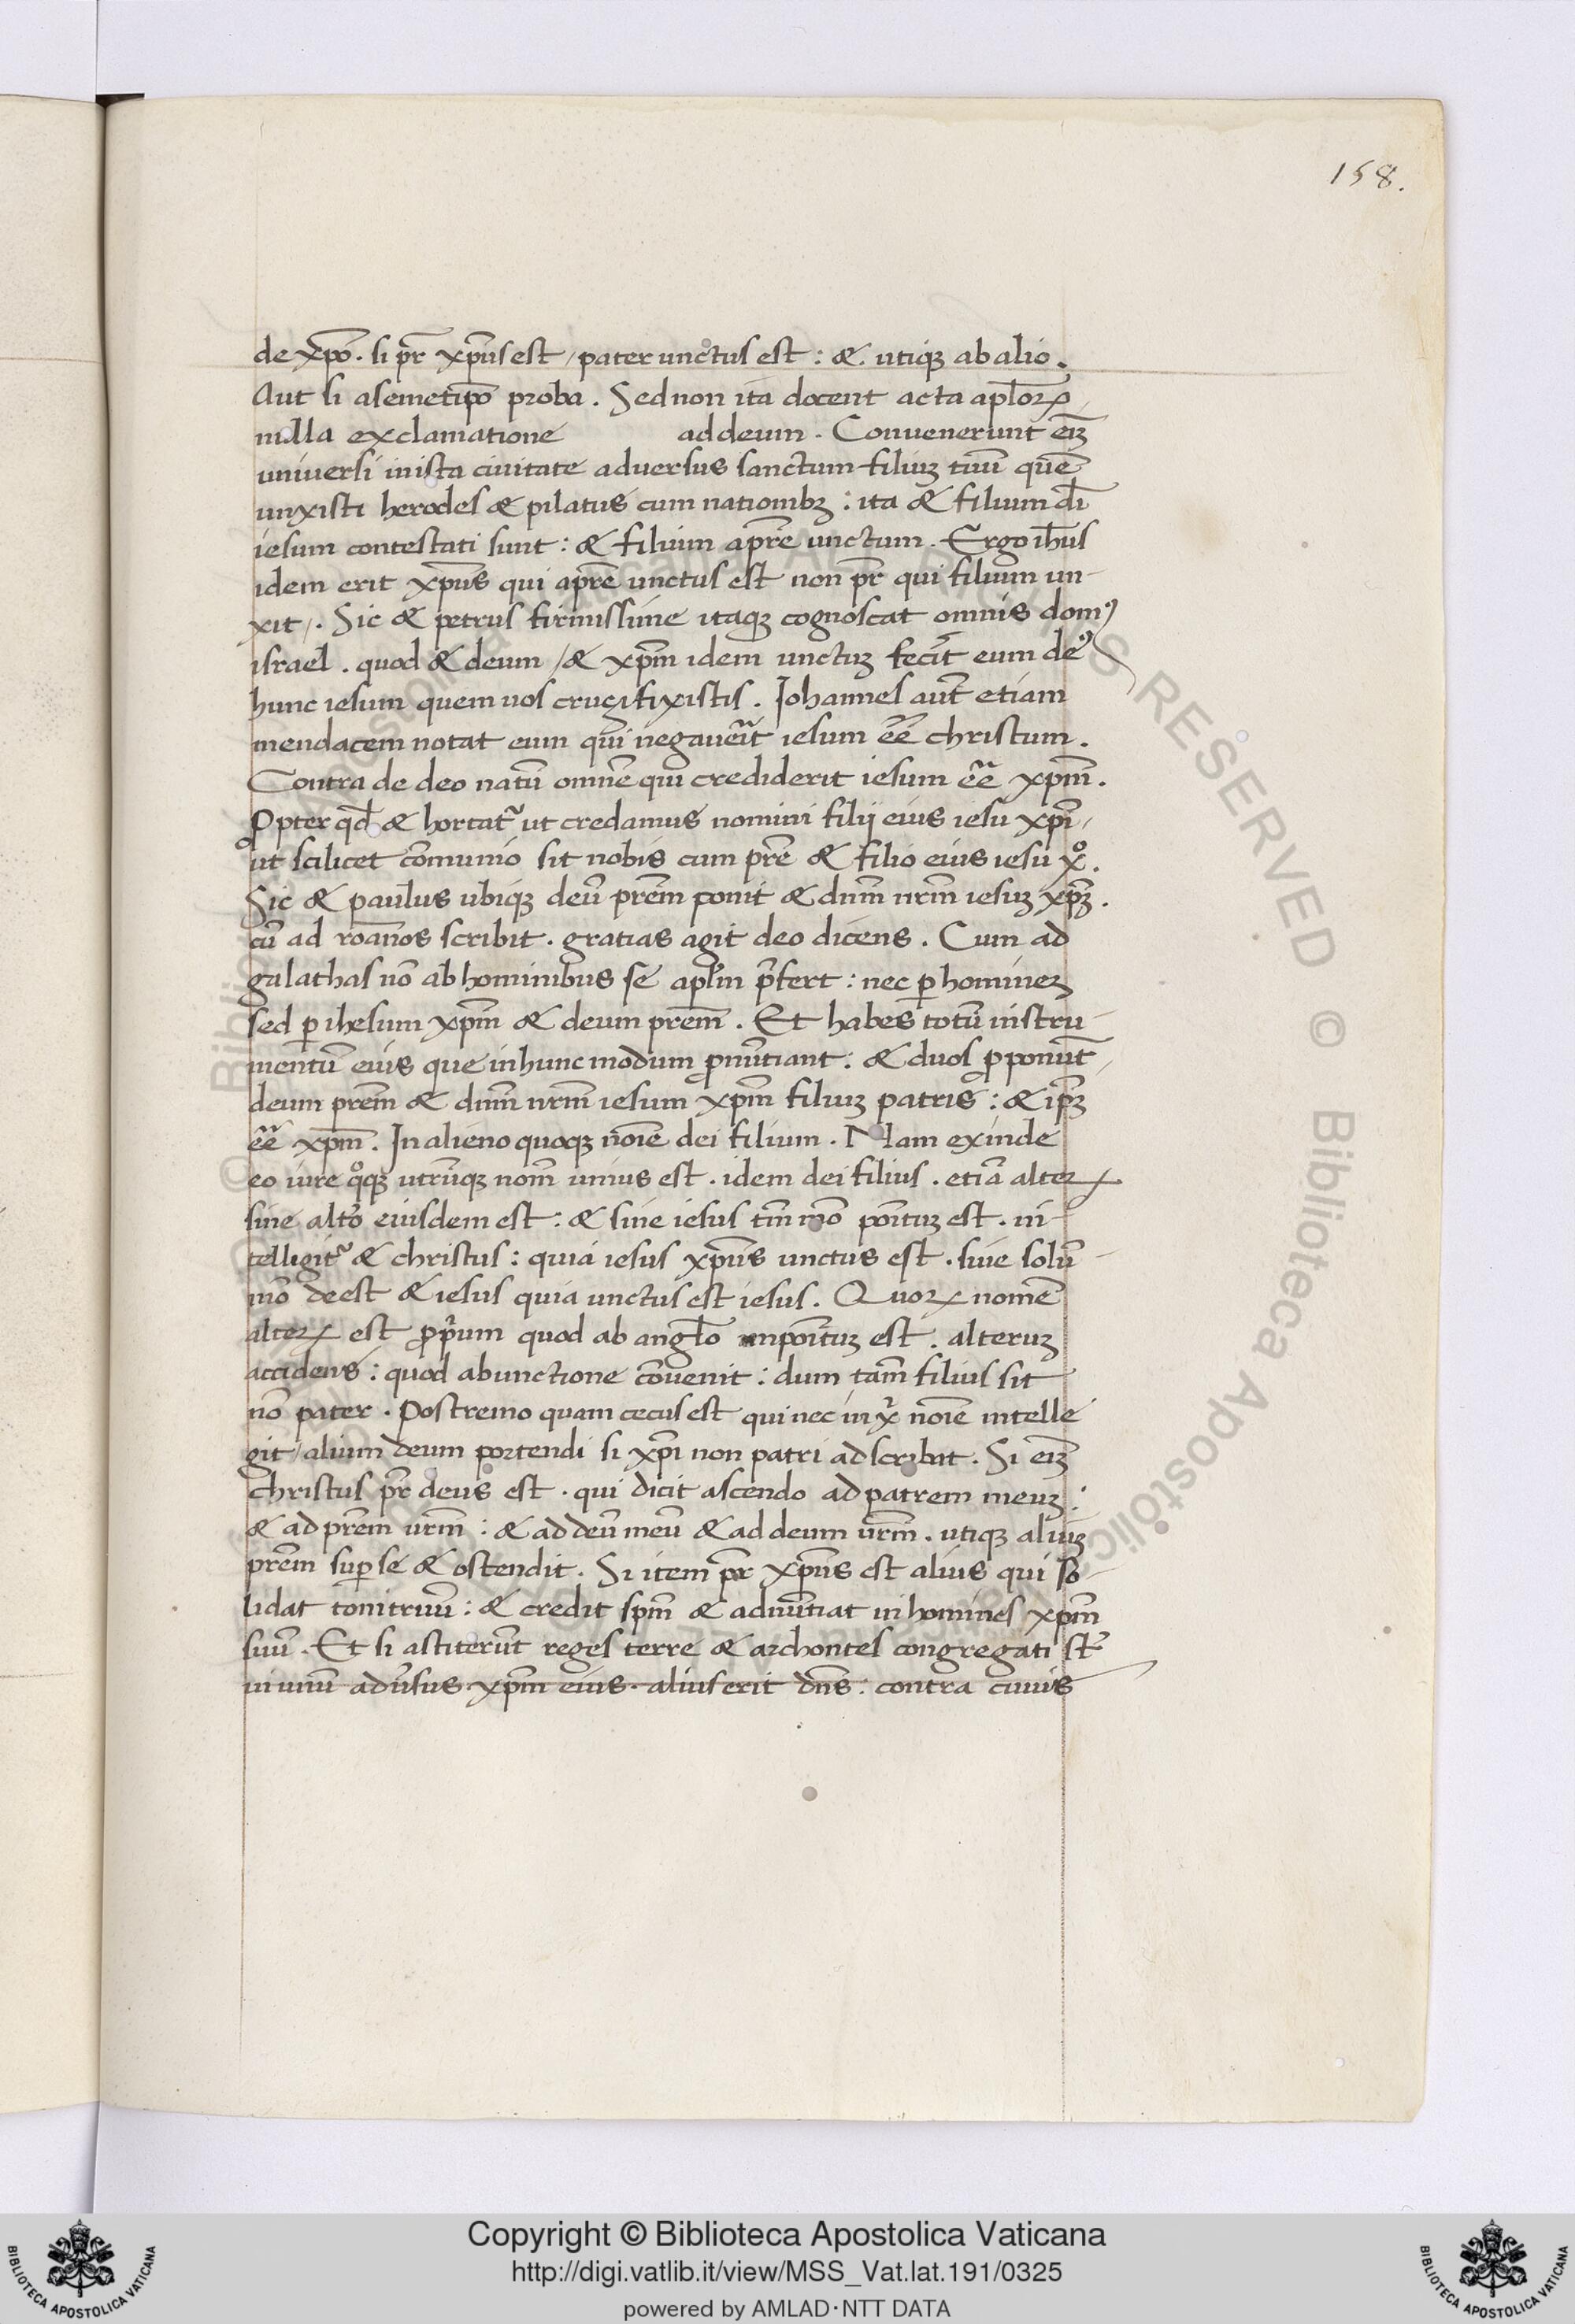 158.
de xp̄o. si pr̄ xp̄us est / pater unctus est : & utiqꝫ ab alio.
Aut si asemetip̄o proba. Sed non ita docent acta apl̄orꝝ
nulla exclamatione ad deum. Convenerunt eīꝫ
universi in ista civitate adversus sanctum filiuꝫ tuū quē
unxisti herodes & pilatus cum nationibꝫ : ita & filium dī
iesum contestati sunt : & filium apr̄e unctum. Ergo ih̄us
idem erit xp̄us qui apr̄e unctus est non pr̄ qui filium un-
xit /. Sic & petrus firmissime itaqꝫ cognoscat omnis domꝰ
israel. quod & deum / & xp̄m idem unctuꝫ fecit eum deꝰ
hunc iesum quem vos crucifixistis. Johannes aut̄ etiam
mendacem notat eum qui negaver̄it iesum ēē christum.
Contra de deo natū omnē qui crediderit iesum ēē xp̄m.
Ꝓpter qd̄ & hortat᷑ ut credamus nomini filij eius iesu xp̄i /
ut scilicet cōmunio sit nobis cum pr̄e & filio eius iesu x͛o.
Sic & paulus ubiqꝫ deū prēm ponit & dn̄m nr̄m iesuꝫ xp̄ꝫ.
cū ad roānos scribit. gratias agit deo dicens. Cum ad
galathas nō ab hominibus se apl̄m p̄fert : nec ꝑ homineꝫ
sed ꝑ ihesum xp̄m & deum prēm. Et habes totū instru-
mentū eius que in hunc modum ꝓnūtiant : & duos ꝓponūt /
deum prēm & dn̄m nr̄m iesum xp̄m filiuꝫ patris : & ip̄ꝫ
ēē xp̄m. In alieno quoqꝫ noīe dei filium. Nam exinde
eo iure qͦqꝫ utrūqꝫ nom̄ unius est. idem dei filius. etiā alterꝝ
sine altō eiusdem est : & sive iesus tm̄mō poītuꝫ est. in-
telligit᷑ & christus : quia iesus xp̄us unctus est. sive solū-
mō deest & iesus quia unctus est iesus. Quorꝝ nomē
alterꝝ est ꝓp̄rum quod ab angl̄o inpoītuꝫ est. alteruꝫ
accidens : quod ab unctione cōvenit : dum tam̄ filius sit
nō pater. Postremo quam cecus est qui nec in xͥ noīe intelle
git / alium deum portendi si xp̄i non patri adscribat. Si eīꝫ
christus pr̄ deus est. qui dicit ascendo ad patrem meuꝫ :
& ad prēm vr̄m : & ad deū meū & ad deum vr̄m. utiqꝫ aliuꝫ
prēm suꝑ se & ostendit. Si item pr̄ xp̄us est alius qui so-
lidat tonitruū : & credit sp̄m & adnūtiat in homines xp̄m
suū. Et si astiterūt reges terre & archontes congregati st̄
in unū adv̄sus xp̄m eius. alius erit dn̄s : contra cuius
Copyright © Biblioteca Apostolica Vaticana
http://digi.vatlib.it/view/MSS_Vat.lat.191/0325
powered by AMLAD·NTT DATA
BIBLIOTECA APOSTOLICA VATICANA
BIBLIOTECA APOSTOLICA VATICANA